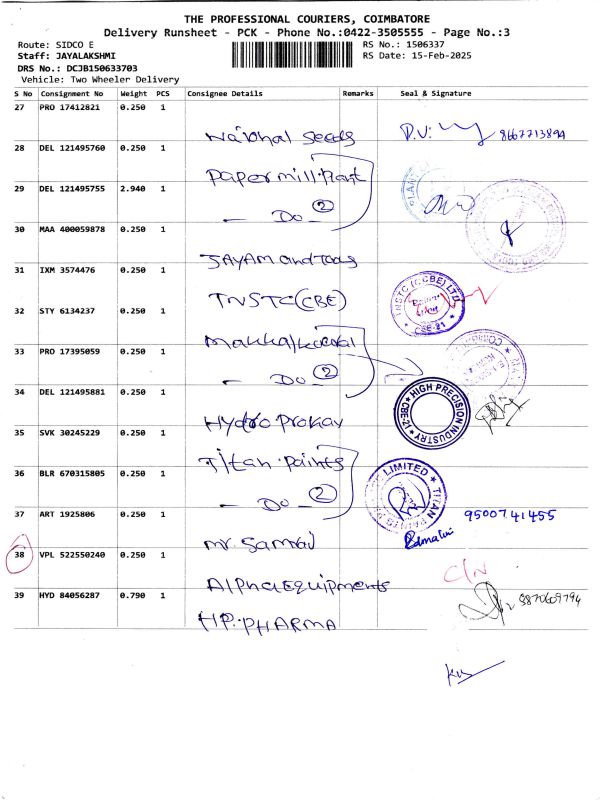 THE PROFESSIONAL COURIERS, COIMBATORE
Delivery Runsheet - PCK - Phone No.:0422-3505555 - Page No.:3
Route: SIDCO E RS No.: 1506337
Staff: JAYALAKSHMI RS Date: 15-Feb-2025
DRS No.: DCJB150633703
Vehicle: Two Wheeler Delivery
S No Consignment No Weight PCS Consignee Details Remarks Seal & Signature
27 PRO 17412821 0.250 1
National Seeds 8667713894
28 DEL 121495760 0.250 1
Paper mill Plant
29 DEL 121495755 2.940 1
— Do — 2
30 MAA 400059878 0.250 1
JAYAM and Tools
31 IXM 3574476 0.250 1
TNSTC (CBE) TNSTC (CCBE) LTD CBE-21
32 STY 6134237 0.250 1
33 PRO 17395059 0.250 1
— Do — 2
34 DEL 121495881 0.250 1
HIGH PRECISION INDUSTRY CBE-21
Hydro Prokav
35 SVK 30245229 0.250 1
Titan Paints
36 BLR 670315805 0.250 1
— Do — 2 LIMITED TITAN PAINTS
37 ART 1925806 0.250 1 9500741455
38 VPL 522550240 0.250 1
Alpha Equipments C/N
39 HYD 84056287 0.790 1 9870609794
HP. PHARMA